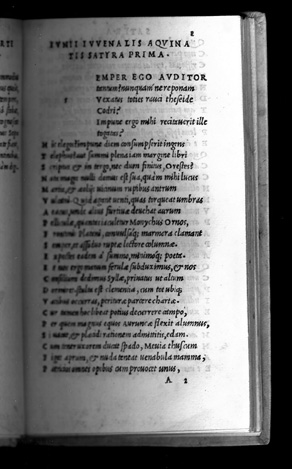 IVNII IVVENALIS AQVINA
TIS SATYRA PRIMA.
EMPER EGO AVDITOR
tantum? nunquam'ne reponam
Vexatus toties rauci theseide
Codri?
Impune ergo mihi recitauerit ille
togatas?
H ic elegos? impune diem consumpserit ingens
T elephus? aut summi plena iam margine libri
S criptus, & in tergo, nec dum finitus, Orestes?
N ota magis nulli domus est sua, quam mihi lucus
M artis, & aeoliis uicinum rupibus antrum
V ulcani. Quid agant uenti, quas torqueat umbras
A eacus, unde alius furtiuae deuehat aurum
P elliculae, quantas iaculetur Monychus Ornos,
F rontonis platani, conuulsaq; marmora clamant
S emper, et assiduo ruptae lectore columnae.
E xpectes eadem a summo, minimoq; poeta.
E t nos ergo manum ferulae subduximus, & nos
C onsilium dedimus Syllae, priuatus ut altum
D ormiret. stulta est clementia, cum tot ubiq;
V atibus occurras, periturae parcere chartae.
C ur tamen hoc libeat potius decurrere campo,
P er quem magnus equos auruncae flexit alumnus,
S i uacat, & placidi rationem admittitis, edam.
C um tener uxorem ducat spado, Meuia thuscum
F igat aprum, & nuda teneat uenabula mamma,
P atricios omnes opibus cum prouocet unus,
A 2